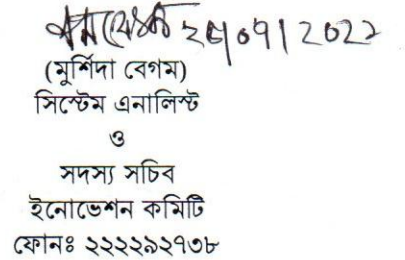 ২৫/০৭/২০২২
(মুর্শিদা বেগম)
সিস্টেম এনালিস্ট
ও
সদস্য সচিব
ইনোভেশন কমিটি
ফোনঃ ২২২২৯২৭৩৮